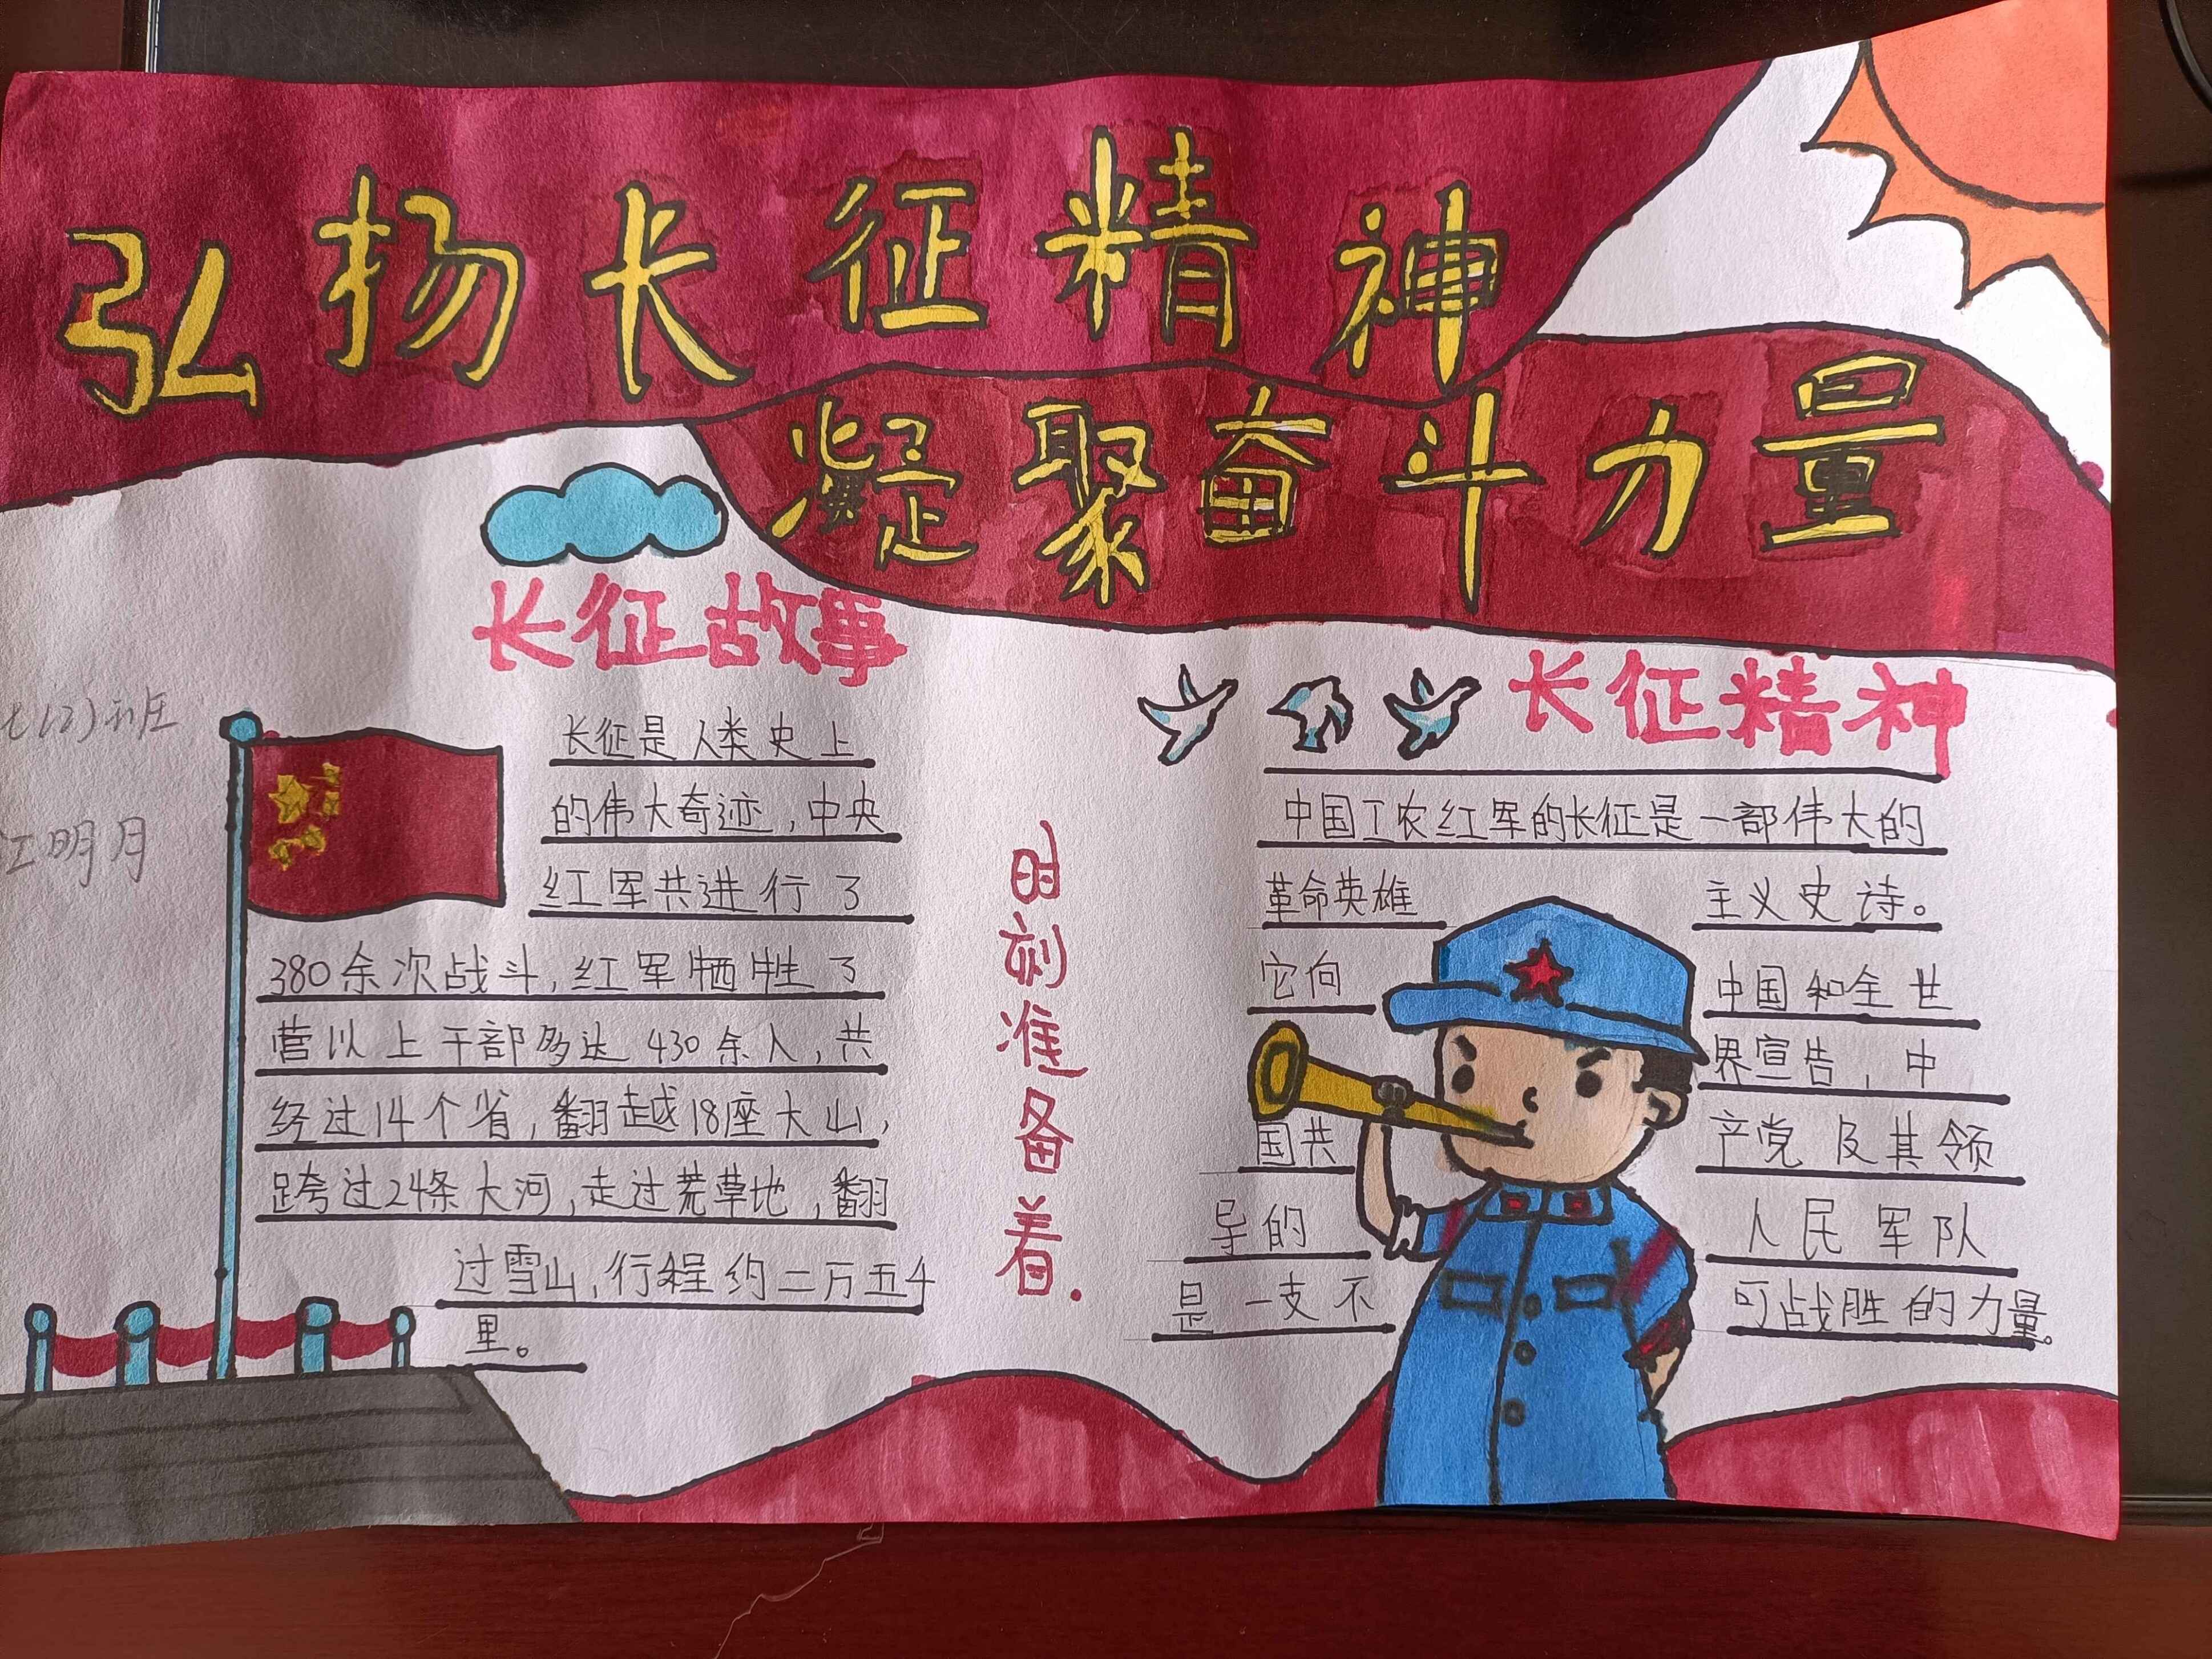 弘扬长征精神
凝聚奋斗力量
长征故事
七(2)班
江明月
长征是人类史上
的伟大奇迹,中央
红军共进行了
380余次战斗,红军牺牲了
营以上干部多达430余人,共
经过14个省,翻越18座大山,
跨过24条大河,走过荒草地,翻
过雪山,行程约二万五千
里。
时刻准备着.
长征精神
中国工农红军的长征是一部伟大的
革命英雄 主义史诗。
它向 中国和全世
界宣告,中
国共 产党及其领
导的 人民军队
是一支不 可战胜的力量。